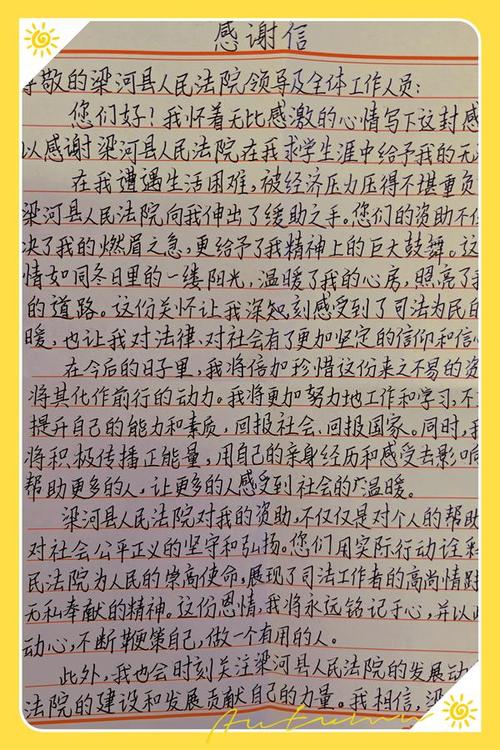 感谢信
尊敬的梁河县人民法院领导及全体工作人员:
您们好!我怀着无比感激的心情写下这封感
以感谢梁河县人民法院在我求学生涯中给予我的无
在我遭遇生活困难,被经济压力压得不堪重负
梁河县人民法院向我伸出了缓助之手。您们的资助不仅
决了我的燃眉之急,更给予了我精神上的巨大鼓舞。这
情如同冬日里的一缕阳光,温暖了我的心房,照亮了我
的道路。这份关怀让我深刻感受到了司法为民的
暖,也让我对法律、对社会有了更加坚定的信仰和信心
在今后的日子里,我将倍加珍惜这份来之不易的资
将其化作前行的动力。我将更加努力地工作和学习,不
提升自己的能力和素质,回报社会、回报国家。同时,我
将积极传播正能量,用自己的亲身经历和感受去影响
帮助更多的人,让更多的人感受到社会的温暖。
梁河县人民法院对我的资助,不仅仅是对个人的帮助
对社会公平正义的坚守和弘扬。您们用实际行动诠释
民法院为人民的崇高使命,展现了司法工作者的高尚情
无私奉献的精神。这份恩情,我将永远铭记于心,并以此
动心,不断鞭策自己,做一个有用的人。
此外,我也会时刻关注梁河县人民法院的发展动
法院的建设和发展贡献自己的力量。我相信,梁
Autumn